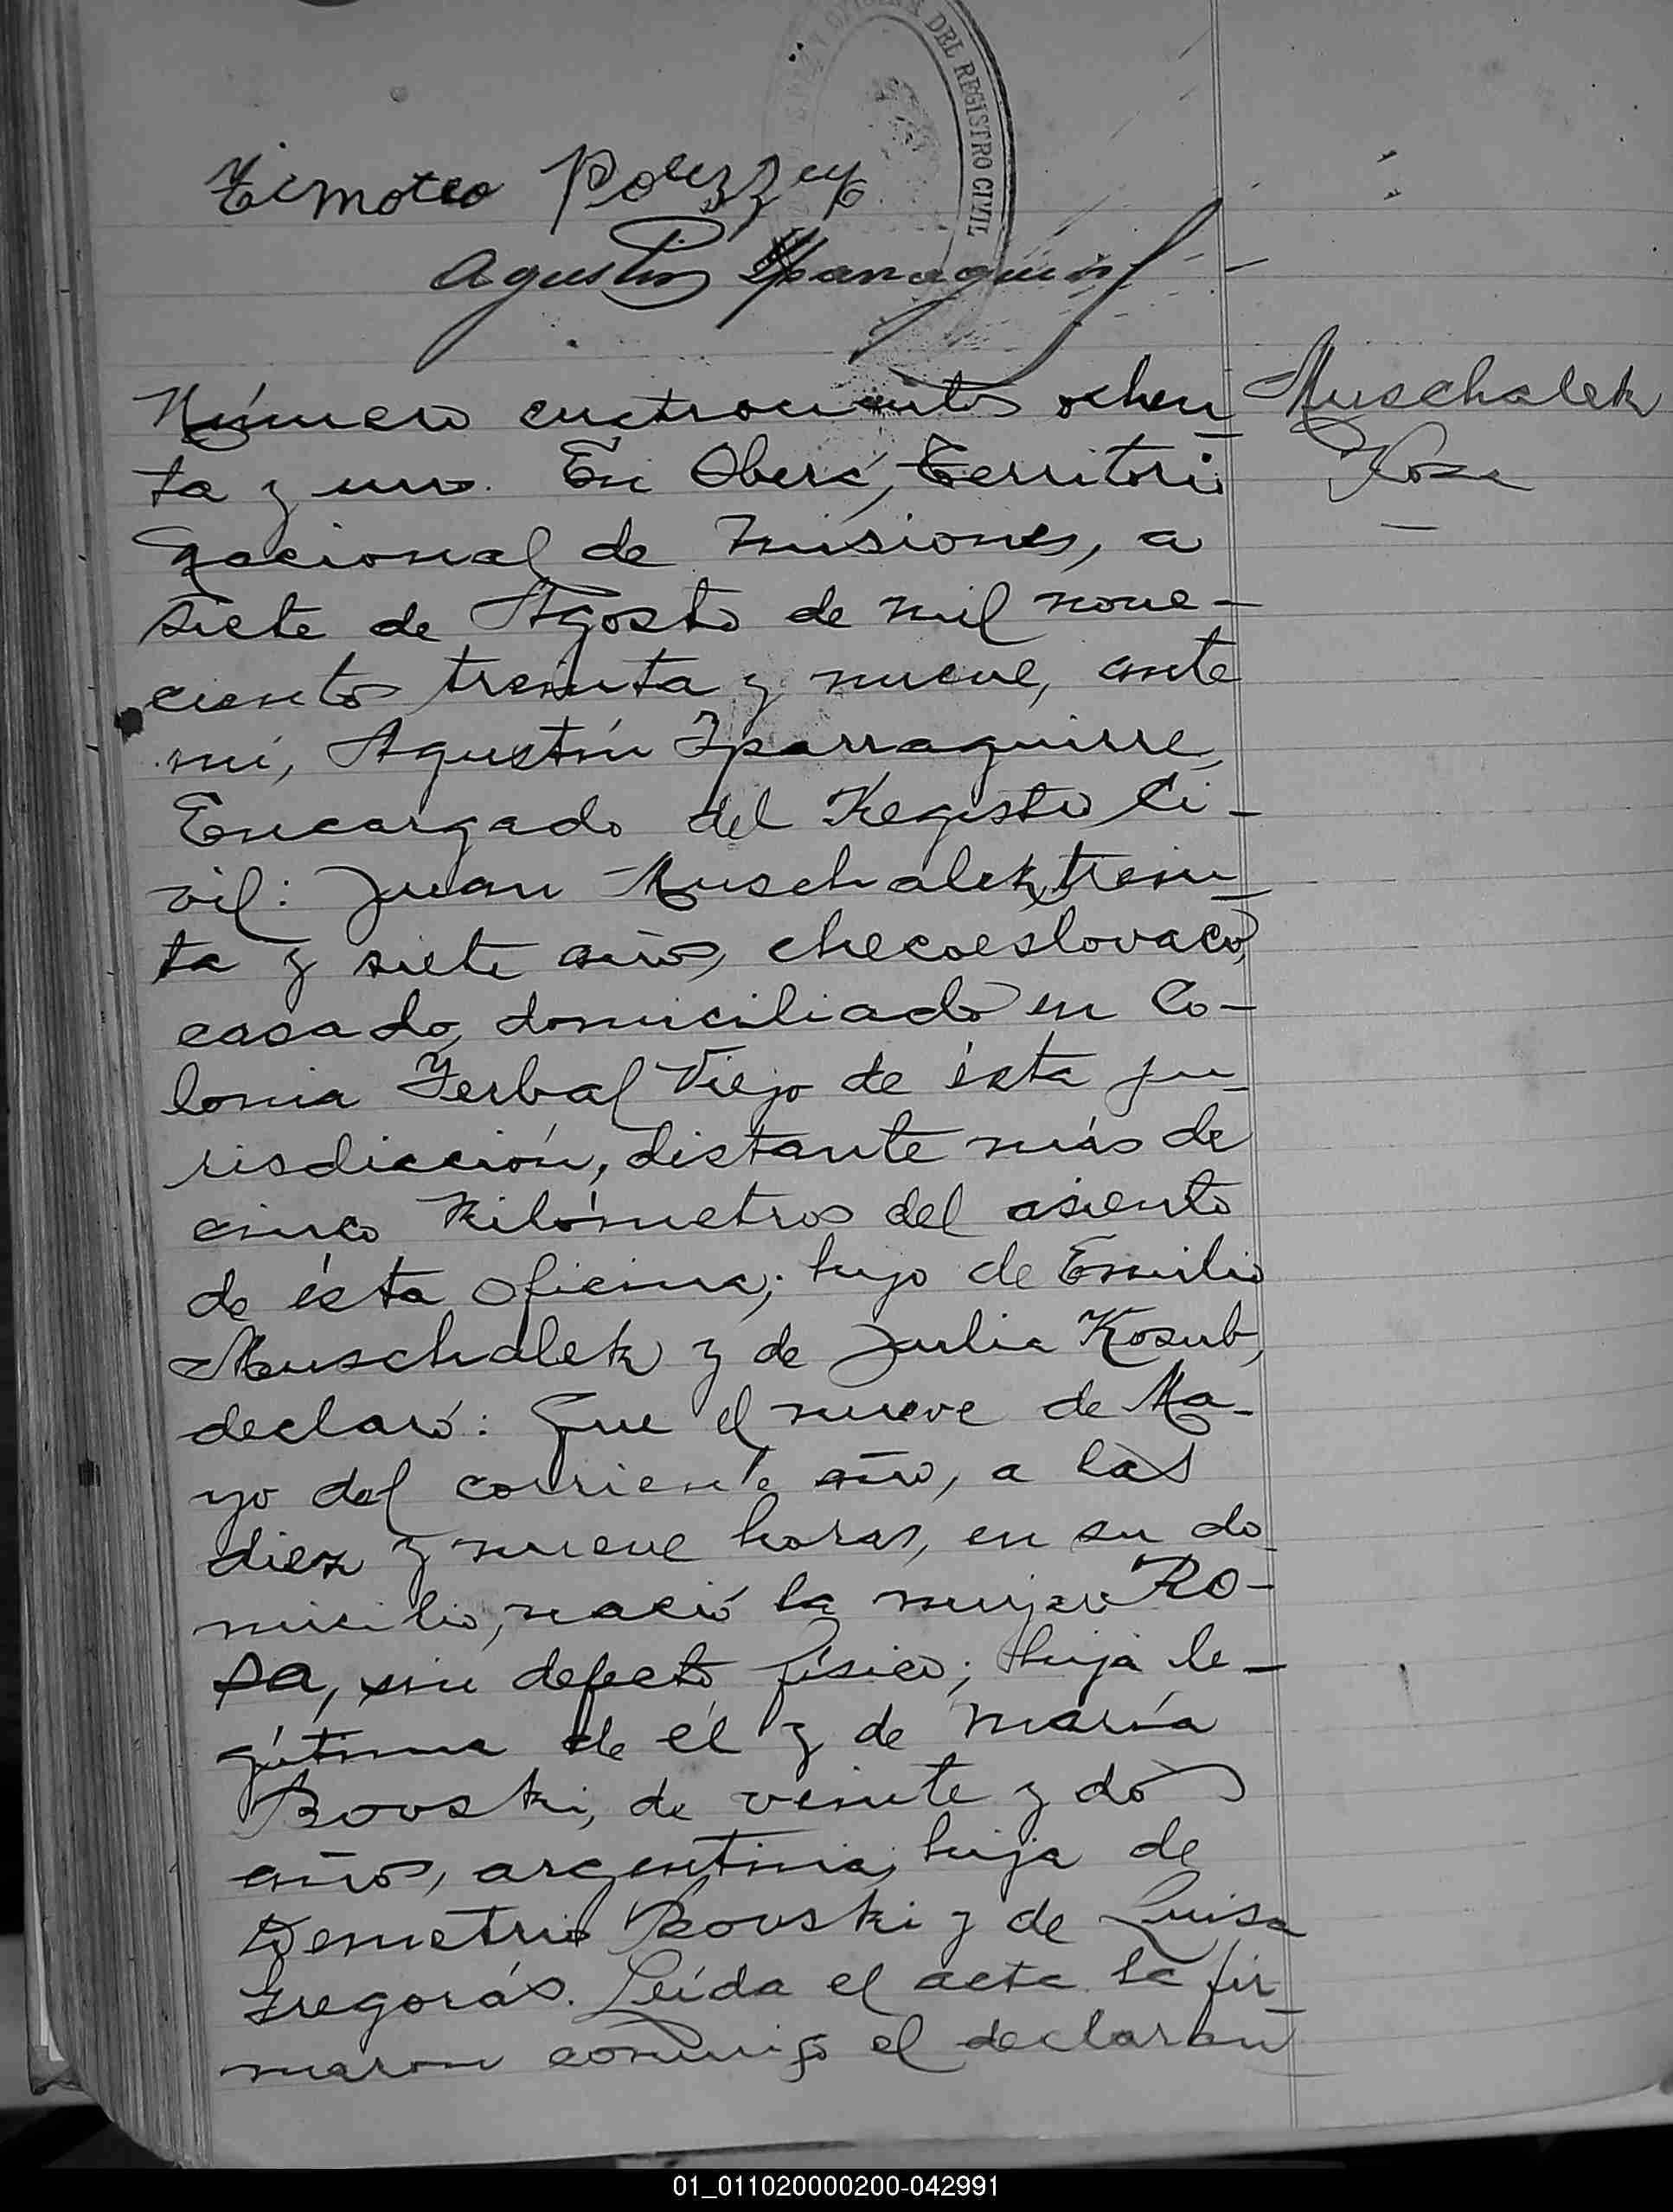 OFICINA DEL REGISTRO CIVIL
Timoteo
Agustín Iparraguirre
Muschalek
Rosa
Número cuatrocientos ochen_
ta y uno. En Oberá, Territorio
Nacional de Misiones, a
siete de Agosto de mil nove-
cientos treinta y nueve, ante
mí, Agustín Iparraguirre,
Encargado del Registro Ci-
vil: Juan Muschalek, trein_
ta y siete años, checoeslovaco,
casado, domiciliado en Co-
lonia Yerbal Viejo de ésta ju_
risdicción, distante más de
cinco kilómetros del asiento
de ésta oficina; hijo de Emilio
Muschalek y de Julia Kosub,
declaró: Que el nueve de Ma-
yo del corriente año, a las
diez y nueve horas, en su do_
micilio, nació la mujer Ro-
sa, sin defecto físico; hija le-
gítima de él y de María
Bovski, de veinte y dos
años, argentina; hija de
Demetrio Bovski y de Luisa
Gregorás. Leída el acta la fir_
maron conmigo el declaran
01_011020000200-042991